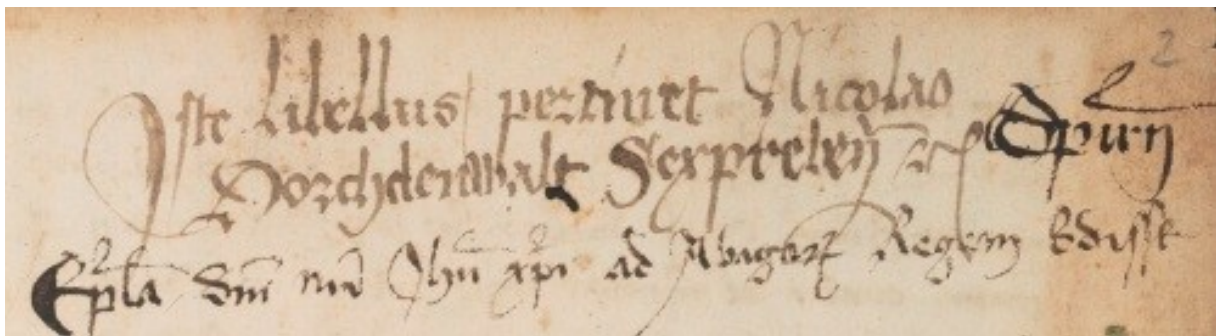 Iste libellus pertinet Nicolao 2
Dorchdenwalt Sexpreben̄ &c
Ep̄la dn̄i nr̄i Jh̄u xp̄i ad Abagarū Regem Edisse